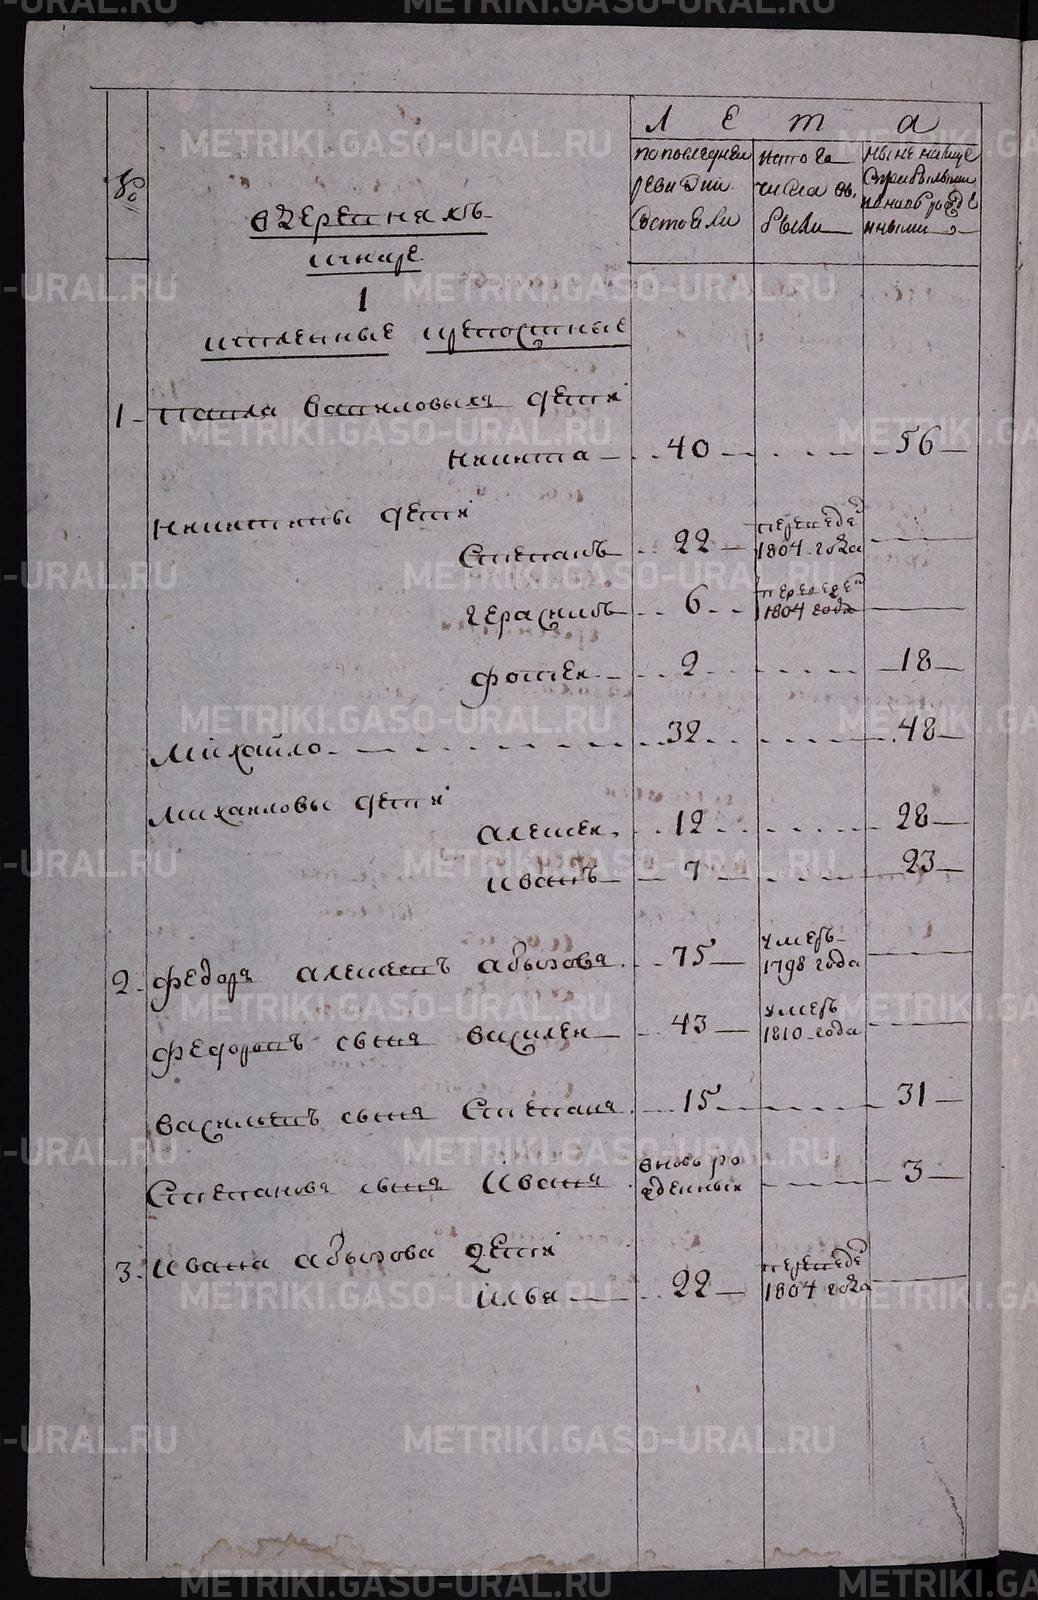 №
Л е т а
по последней
ревизии
состояли
изъ того
числа вы
были
ныне налице
с прибылыми
и вновь рожде
нными
1
1. Павла Вавиловыхъ дети
Никита 40 56
Никитины дети
Степанъ 22 переведе
1804 года
Герасимъ 6 переведе
1804 года
Фотей 2 18
Михайло 32 48
Михаиловы дети
Алексей 12 28
Иванъ 7 23
2. Федоръ Алексеевъ Абызовъ 75 умеръ
1798 года
Федоровъ сынъ Василей 43 умеръ
1810 года
Васильевъ сынъ Степанъ 15 31
Степановъ сынъ Иванъ вновь ро
жденных 3
3. Ивана Абызова дети
Илья 22 переведе
1804 года
METRIKI.GASO-URAL.RU